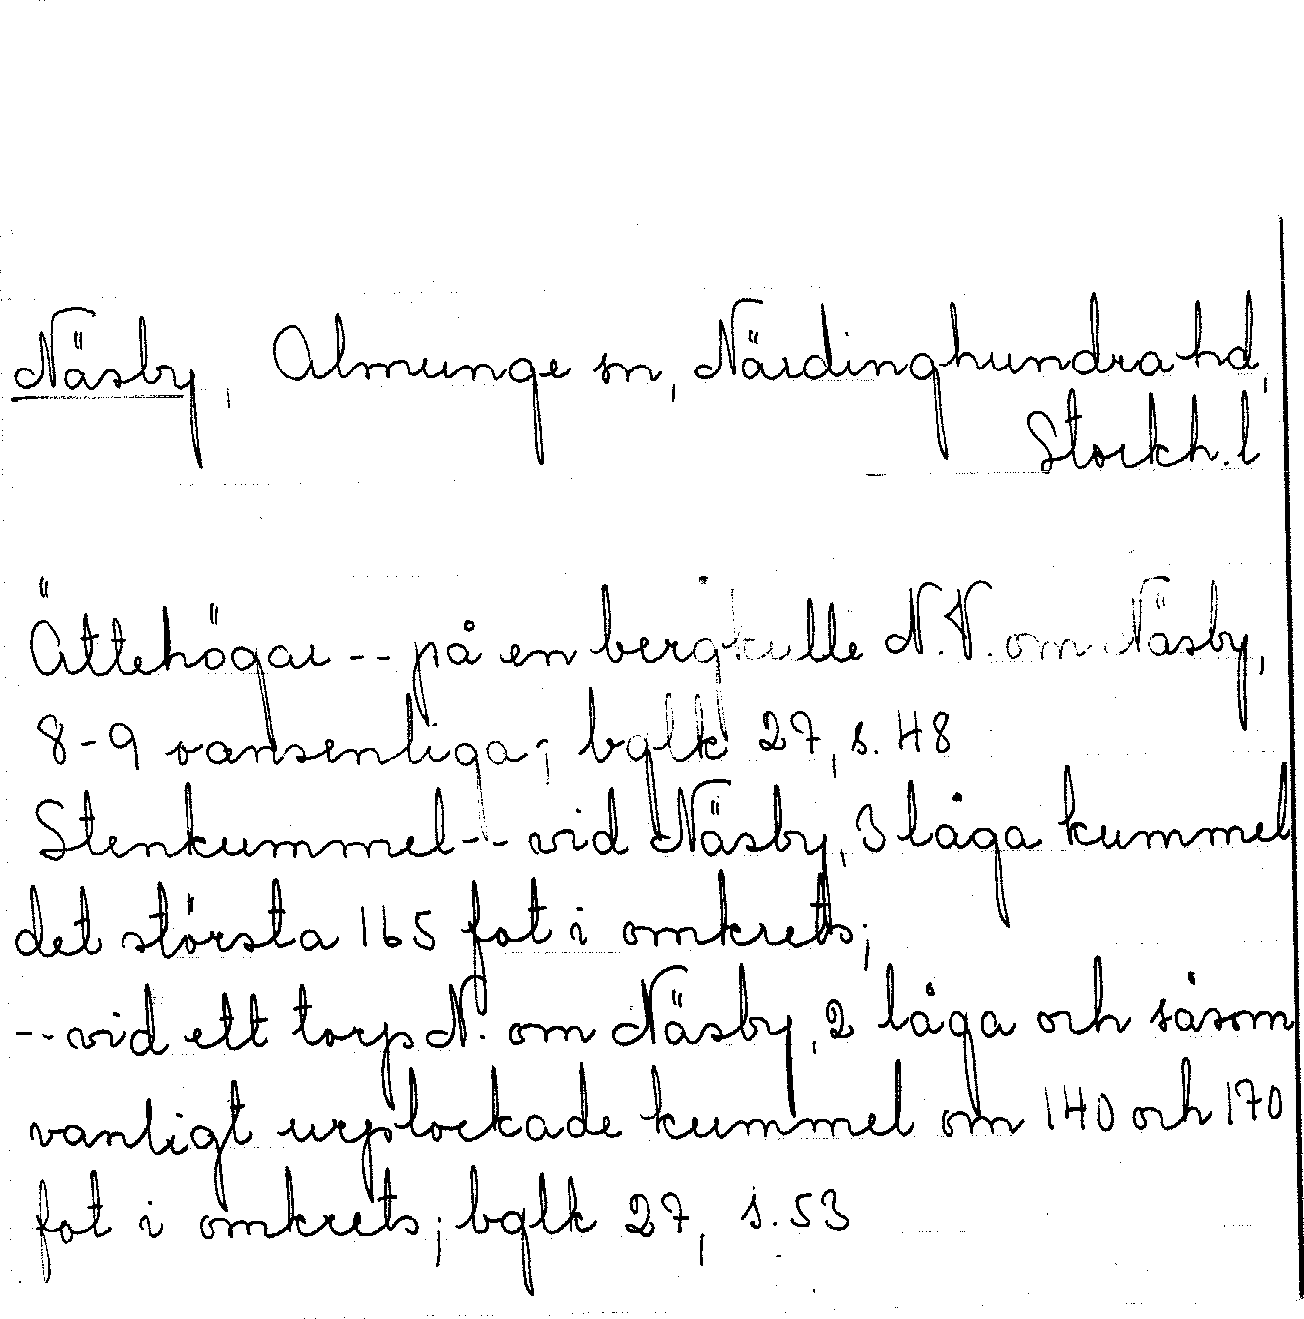 Näsby, Almunge sn, Närdinghundra hd,
Stockh. l
Ättehögar -- på en bergkulle N.V. om Näsby,
8-9 oansenliga; bglk 27, s. 48
Stenkummel -- vid Näsby, 3 låga kummel
det största 165 fot i omkrets;
-- vid ett torp N. om Näsby, 2 låga och såsom
vanligt urplockade kummel om 140 och 170
fot i omkrets; bglk 27, s. 53